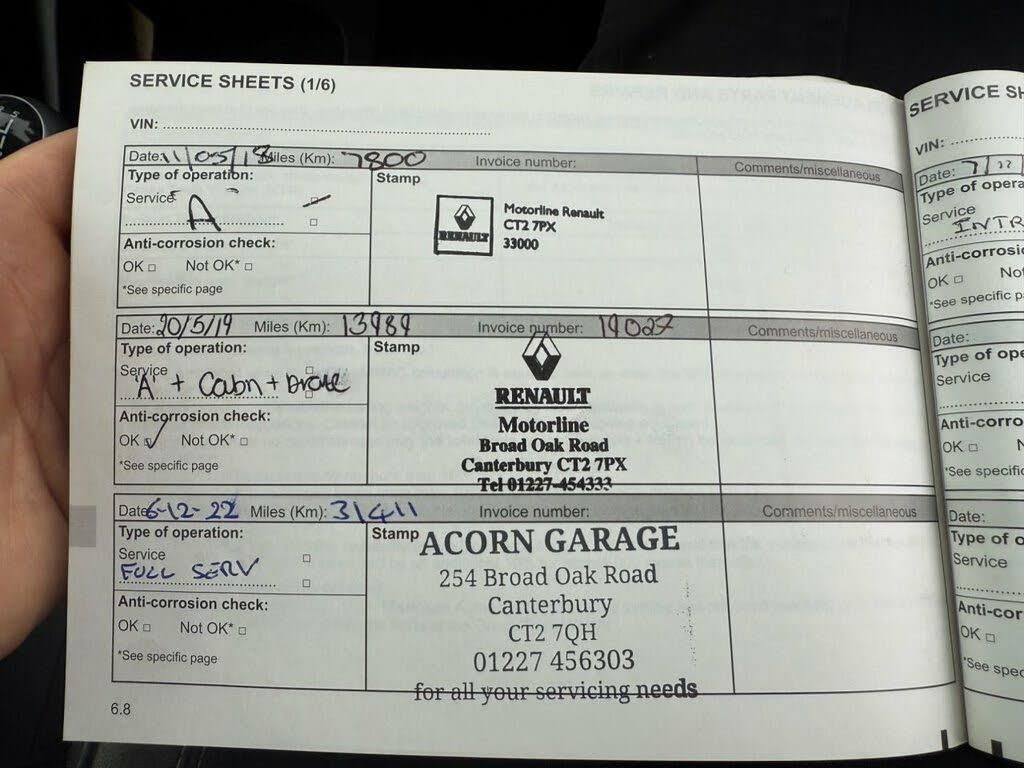 SERVICE SHEETS (1/6)
VIN:
Date: 11/05/18 Miles (Km): 7800 Invoice number: Comments/miscellaneous
Type of operation: Stamp
Service
A
Anti-corrosion check:
OK Not OK*
*See specific page
RENAULT
Motorline Renault
CT2 7PX
33000
Date: 20/5/19 Miles (Km): 13989 Invoice number: 19027 Comments/miscellaneous
Type of operation: Stamp
Service
'A' + Cabn +
Anti-corrosion check:
OK ✓ Not OK*
*See specific page
RENAULT
Motorline
Broad Oak Road
Canterbury CT2 7PX
Tel 01227-454333
Date 6-12-22 Miles (Km): 31411 Invoice number: Comments/miscellaneous
Type of operation: Stamp
Service
FULL SERV
Anti-corrosion check:
OK Not OK*
*See specific page
ACORN GARAGE
254 Broad Oak Road
Canterbury
CT2 7QH
01227 456303
for all your servicing needs
6.8
SERVICE SH
VIN:
Date: 7/22/
Type of opera
Service
INTR
Anti-corrosio
OK Not
*See specific p
Date:
Type of ope
Service
Anti-corro
OK N
*See specific
Date:
Type of o
Service
Anti-cor
OK
*See spec